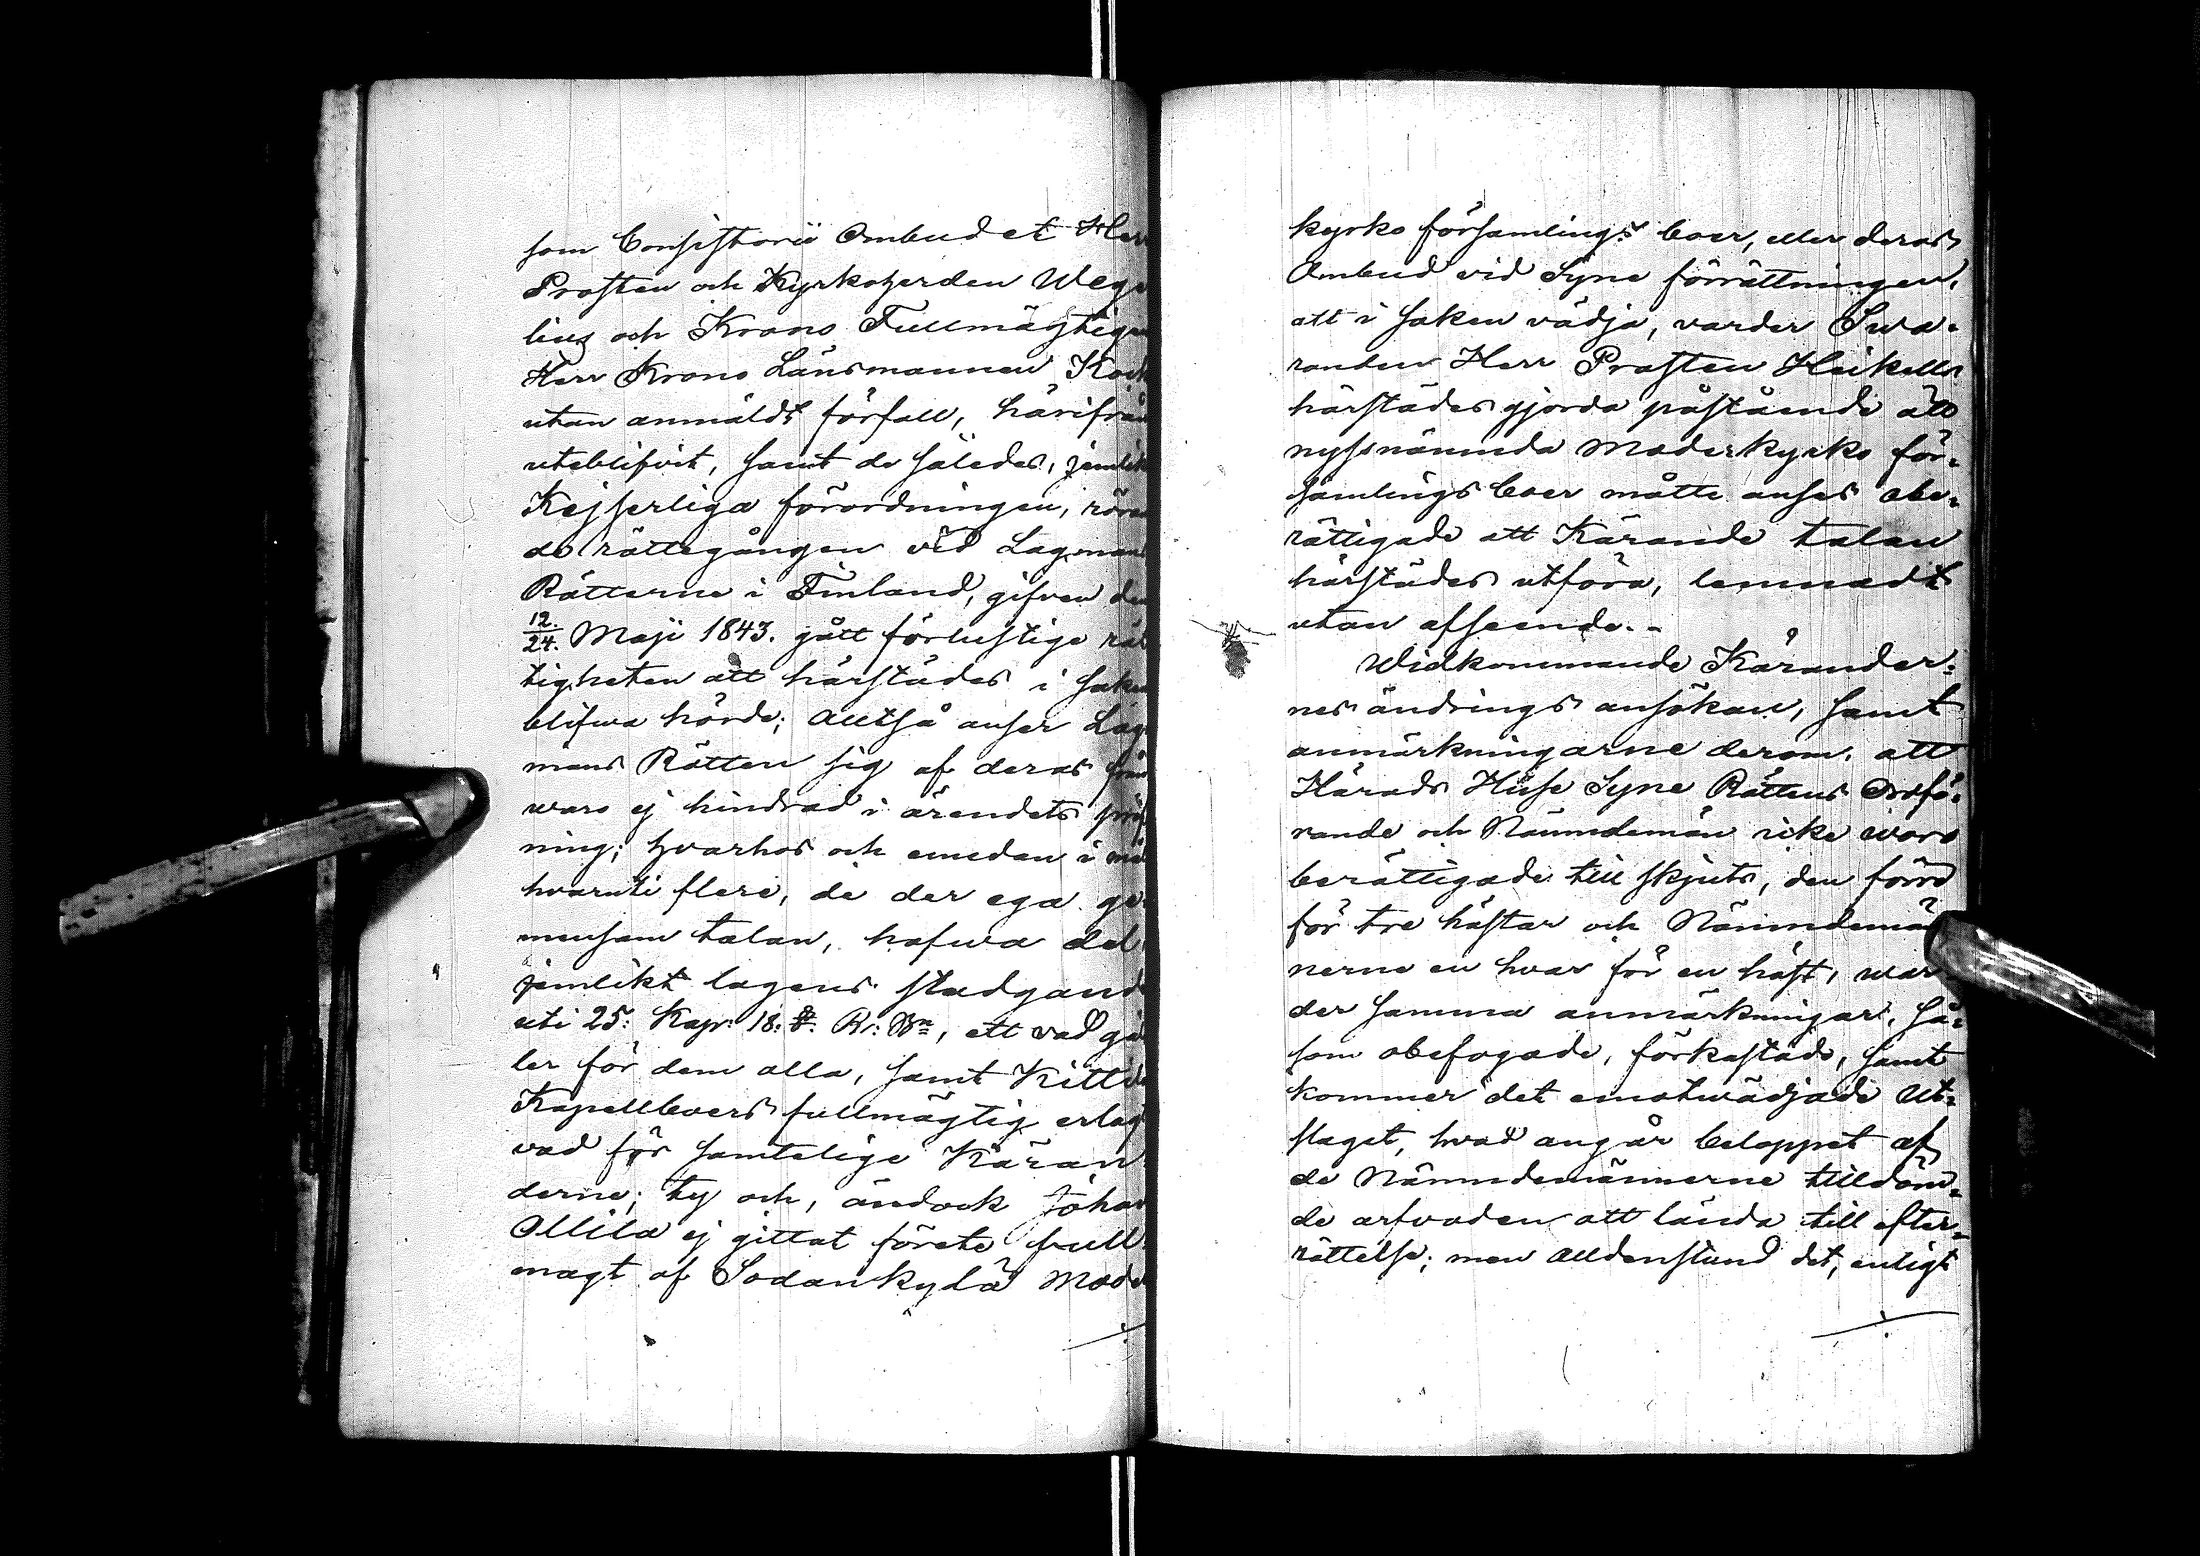 som Consistorii Ombudet Her
Prosten och Kyrkoherden Wege
lius och Krono Fullmägtige
Herr Krono Länsmannen Kock
utan anmäldt förfall, härifrån
uteblifvit, samt de således, jemlikt
Kejserliga förordningen, röran
de rättegången vid Lagmans
Rätterne i Finland, gifven den
12./24. Maji 1843. gått förlustige rät
tigheten att härstädes i saken
blifwa hörde; Alltså anser Lag
mans Rätten sig af deras från
waro ej hindrad i ärendets pröf
ning; hvarhos och emedan i mål
hvaruti flere, de der ega ge
mensam talan, hafwa del
jemlikt lagens stadgande
uti 25: Kap: 18: §: R: Bn, ett vad gäl
ler för dem alla, samt Kittilä
Kapellboers fullmägtig erlagt
vad för samtelige Käran
derne; ty och, ändock Johan
Ollila ej gittat förete full
magt af Sodankylä Moder
kyrko församlings boer, eller deras
Ombud vid Syne förrättningen,
att i saken vädja, varder Swa-
randen Herr Prosten Heikells
härstädes gjorda påstående att
nyssnämnda Moderkyrko för-
samlings boer måtte anses obe-
rättigade att Kärande talan
härstädes utföra, lemnadt
utan afseende.-
Widkommande Kärander-
nes ändrings ansökan, samt
anmärkningarne derom, att
Härads Huse Syne Rättens Ordfö-
rande och Nämndemän icke woro
berättigade till skjuts, den förre
för tre hästar och Nämndemän
nerne en hvar för en häst, war
der samma anmärkningar, så-
som obefogade, förkastade, samt
kommer det emotwädjade Ut-
slaget, hvad angår beloppet af
de Nämndemännerne tilldöm-
de arfvoden att lända till efter-
rättelse; men alldenstund det, enligt